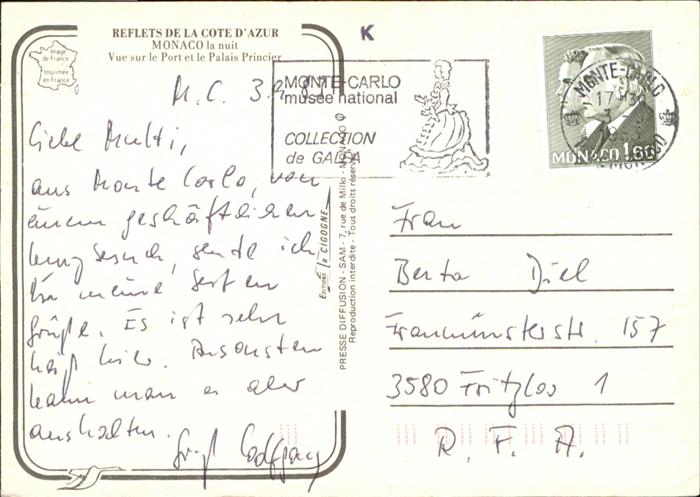 REFLETS DE LA COTE D'AZUR
MONACO la nuit
Vue sur le Port et le Palais Princier
Image
de France
Imprimée
en France
K
M.C. 3.9.
Liebe Mutti,
aus Monte Carlo, von
einem geschäftlichen
sende ich
Dir meine besten
Grüße. Es ist sehr
heiß hier. Ansonsten
kann man es aber
aushalten.
Gruß Wolfgang
MONTE-CARLO
musée national
COLLECTION
de GALEA
MONTE-CARLO
17 H 30
3
MONACO
MONACO 1,60
Editions la CIGOGNE
PRESSE DIFFUSION - SAM - 7, rue de Millo - MONACO
Reproduction interdite - Tous droits réservés
Frau
Berta Diel
Fraumünsterstr. 157
3580 Fritzlar 1
R. F. A.